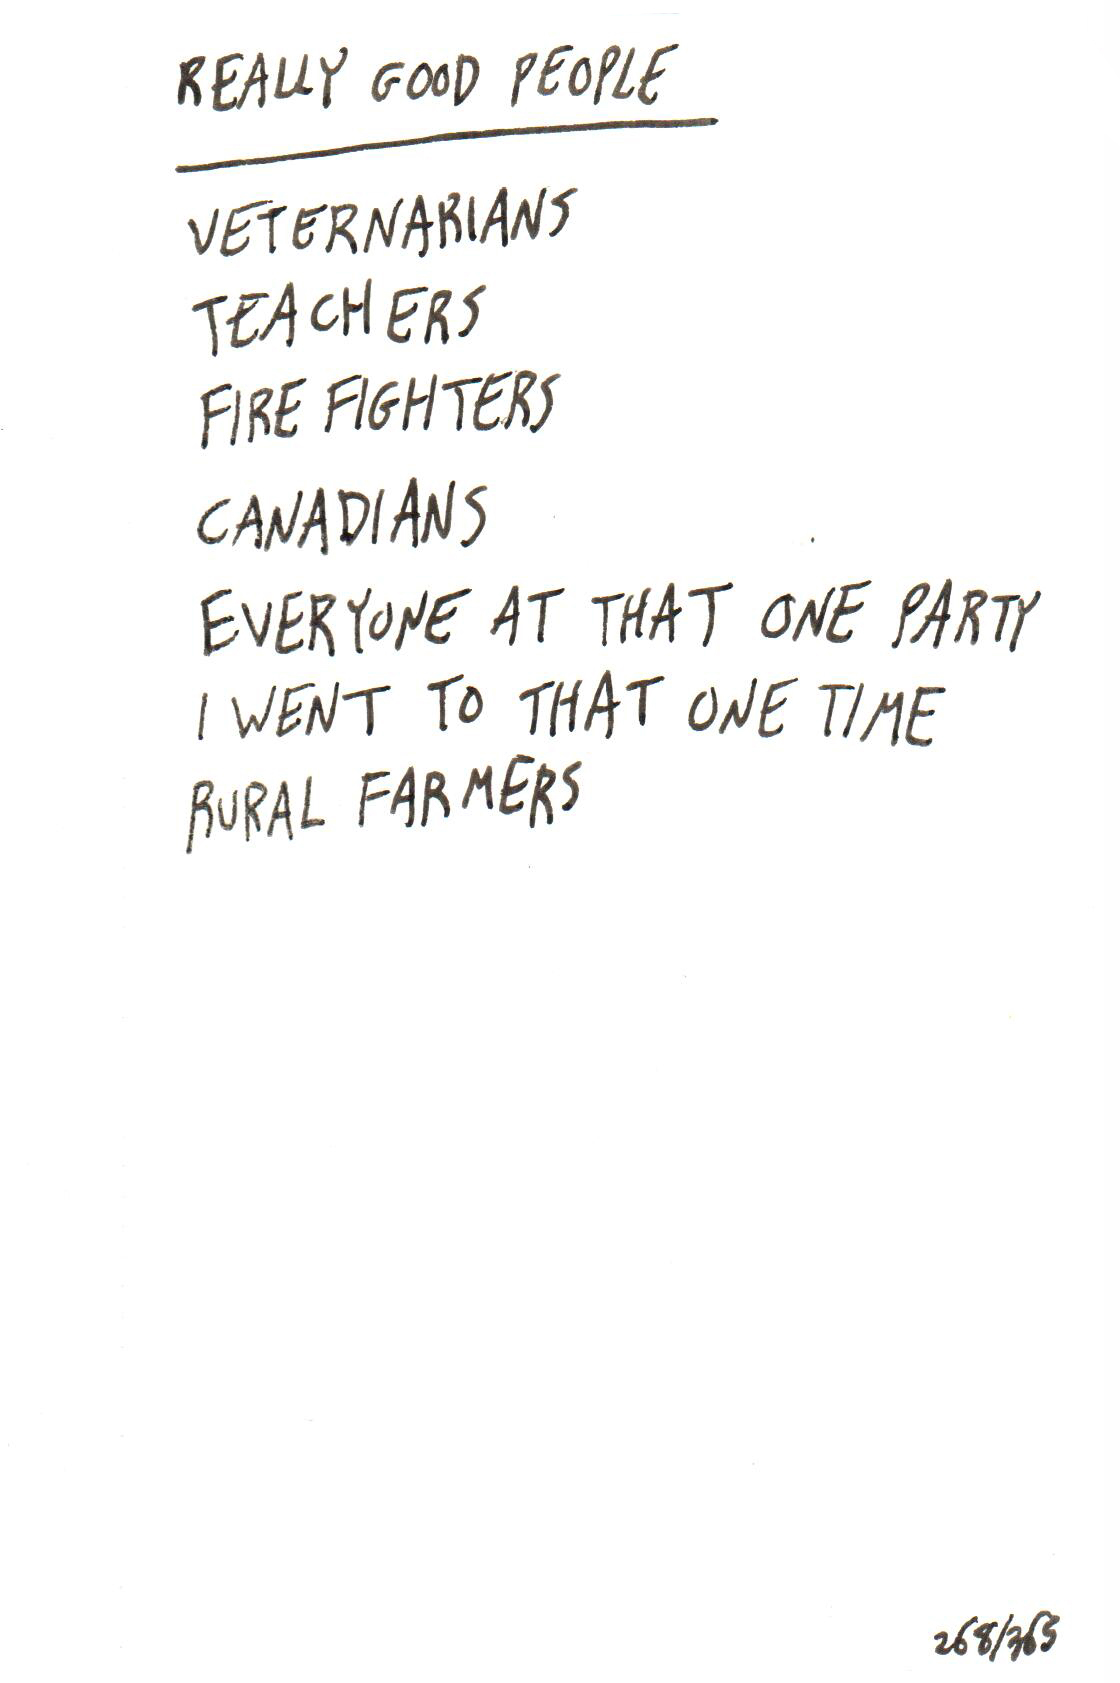 REALLY GOOD PEOPLE
VETERNARIANS
TEACHERS
FIRE FIGHTERS
CANADIANS
EVERYONE AT THAT ONE PARTY
I WENT TO THAT ONE TIME
RURAL FARMERS
268/365